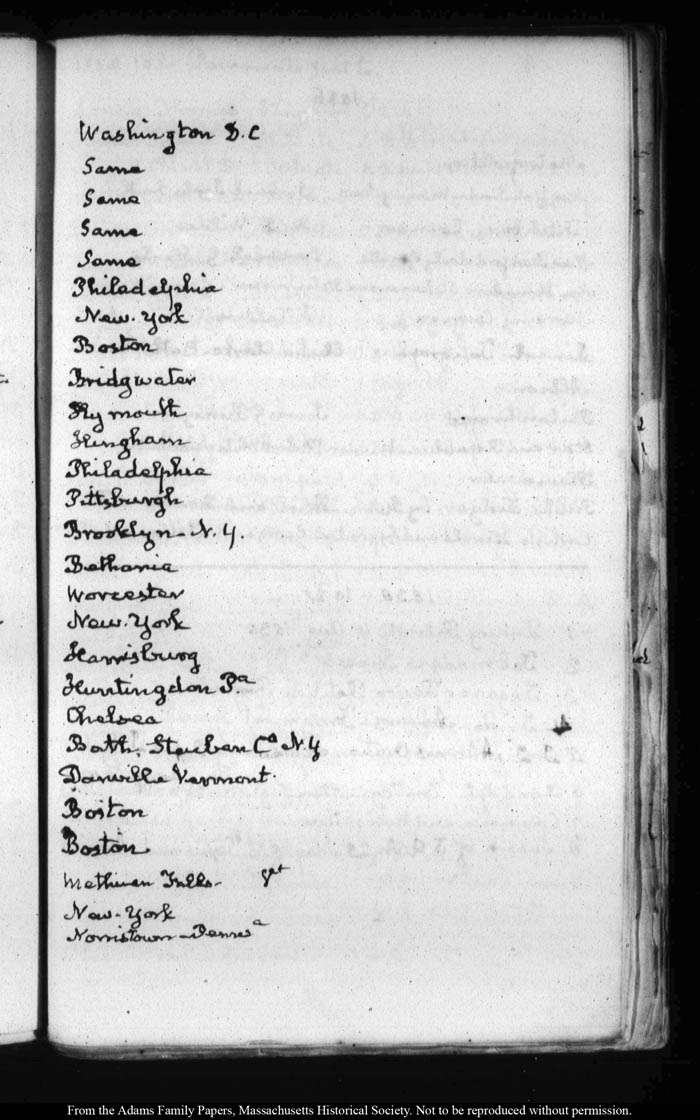 Washington D.C
Same
Same
Same
Same
Philadelphia
New-York
Boston
Bridgwater
Plymouth
Hingham
Philadelphia
Pittsburgh
Brooklyn-N.Y.
Bethania
Worcester
New-York
Harrisburg
Huntingdon Pa
Chelsea
Bath. Steuben Co N.Y
Danville Vermont.
Boston
Boston.
Methuen Falls-
New-York
Norristown-Penns a
From the Adams Family Papers, Massachusetts Historical Society. Not to be reproduced without permission.